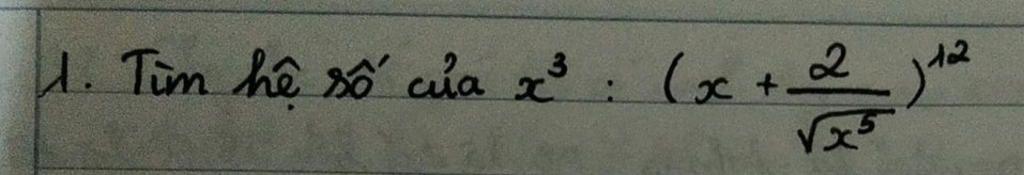 1. Tìm hệ số của x³ : (x + 2/√x⁵)¹²